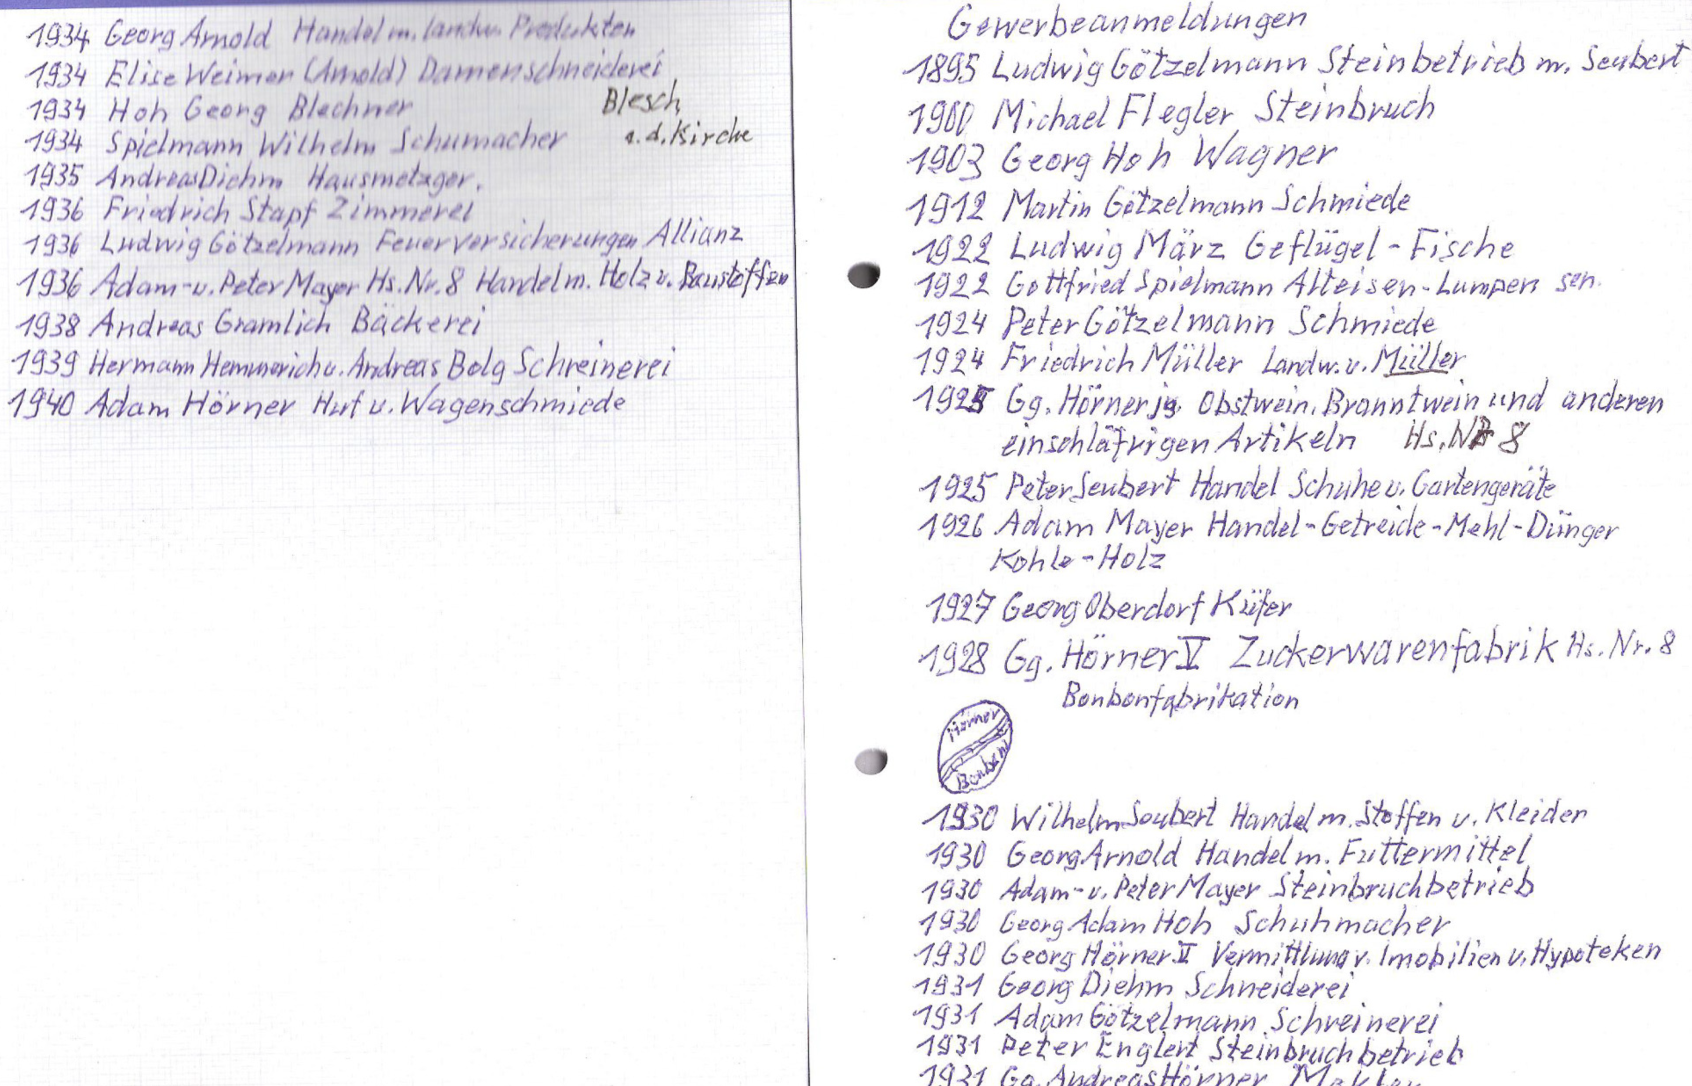 1934 Georg Arnold Handel m. landw. Produkten
1934 Elise Weimer (Arnold) Damenschneiderei
1934 Hoh Georg Blechner Blesch
1934 Spielmann Wilhelm Schumacher a.d. Kirche
1935 Andreas Diehm Hausmetzger.
1936 Friedrich Stapf Zimmerei
1936 Ludwig Götzelmann Feuerversicherungen Allianz
1936 Adam- u. Peter Mayer Hs. Nr. 8 Handel m. Holz u. Baustoffen
1938 Andreas Gramlich Bäckerei
1939 Hermann Hemmerich u. Andreas Bolg Schreinerei
1940 Adam Hörner Huf u. Wagenschmiede
Gewerbeanmeldungen
1895 Ludwig Götzelmann Steinbetrieb m. Seubert
1900 Michael Flegler Steinbruch
1903 Georg Hoh Wagner
1912 Martin Götzelmann Schmiede
1922 Ludwig März Geflügel - Fische
1922 Gottfried Spielmann Alteisen - Lumpen sen.
1924 Peter Götzelmann Schmiede
1924 Friedrich Müller Landw. u. Müller
1925 Gg. Hörner jg. Obstwein, Branntwein und anderen
einschläfrigen Artikeln Hs. Nr 8
1925 Peter Seubert Handel Schuhe u. Gartengeräte
1926 Adam Mayer Handel - Getreide - Mehl - Dünger
Kohle - Holz
1927 Georg Oberdorf Küfer
1928 Gg. Hörner V Zuckerwarenfabrik Hs. Nr. 8
Bonbonfabrikation
Hörner
1930 Wilhelm Seubert Handel m. Stoffen u. Kleider
1930 Georg Arnold Handel m. Futtermittel
1930 Adam- u. Peter Mayer Steinbruchbetrieb
1930 Georg Adam Hoh Schuhmacher
1930 Georg Hörner V Vermittlung v. Imobilien u. Hypoteken
1931 Georg Diehm Schneiderei
1931 Adam Götzelmann Schreinerei
1931 Peter Englert Steinbruchbetrieb
1931 Gg. Andreas Hörner Makler